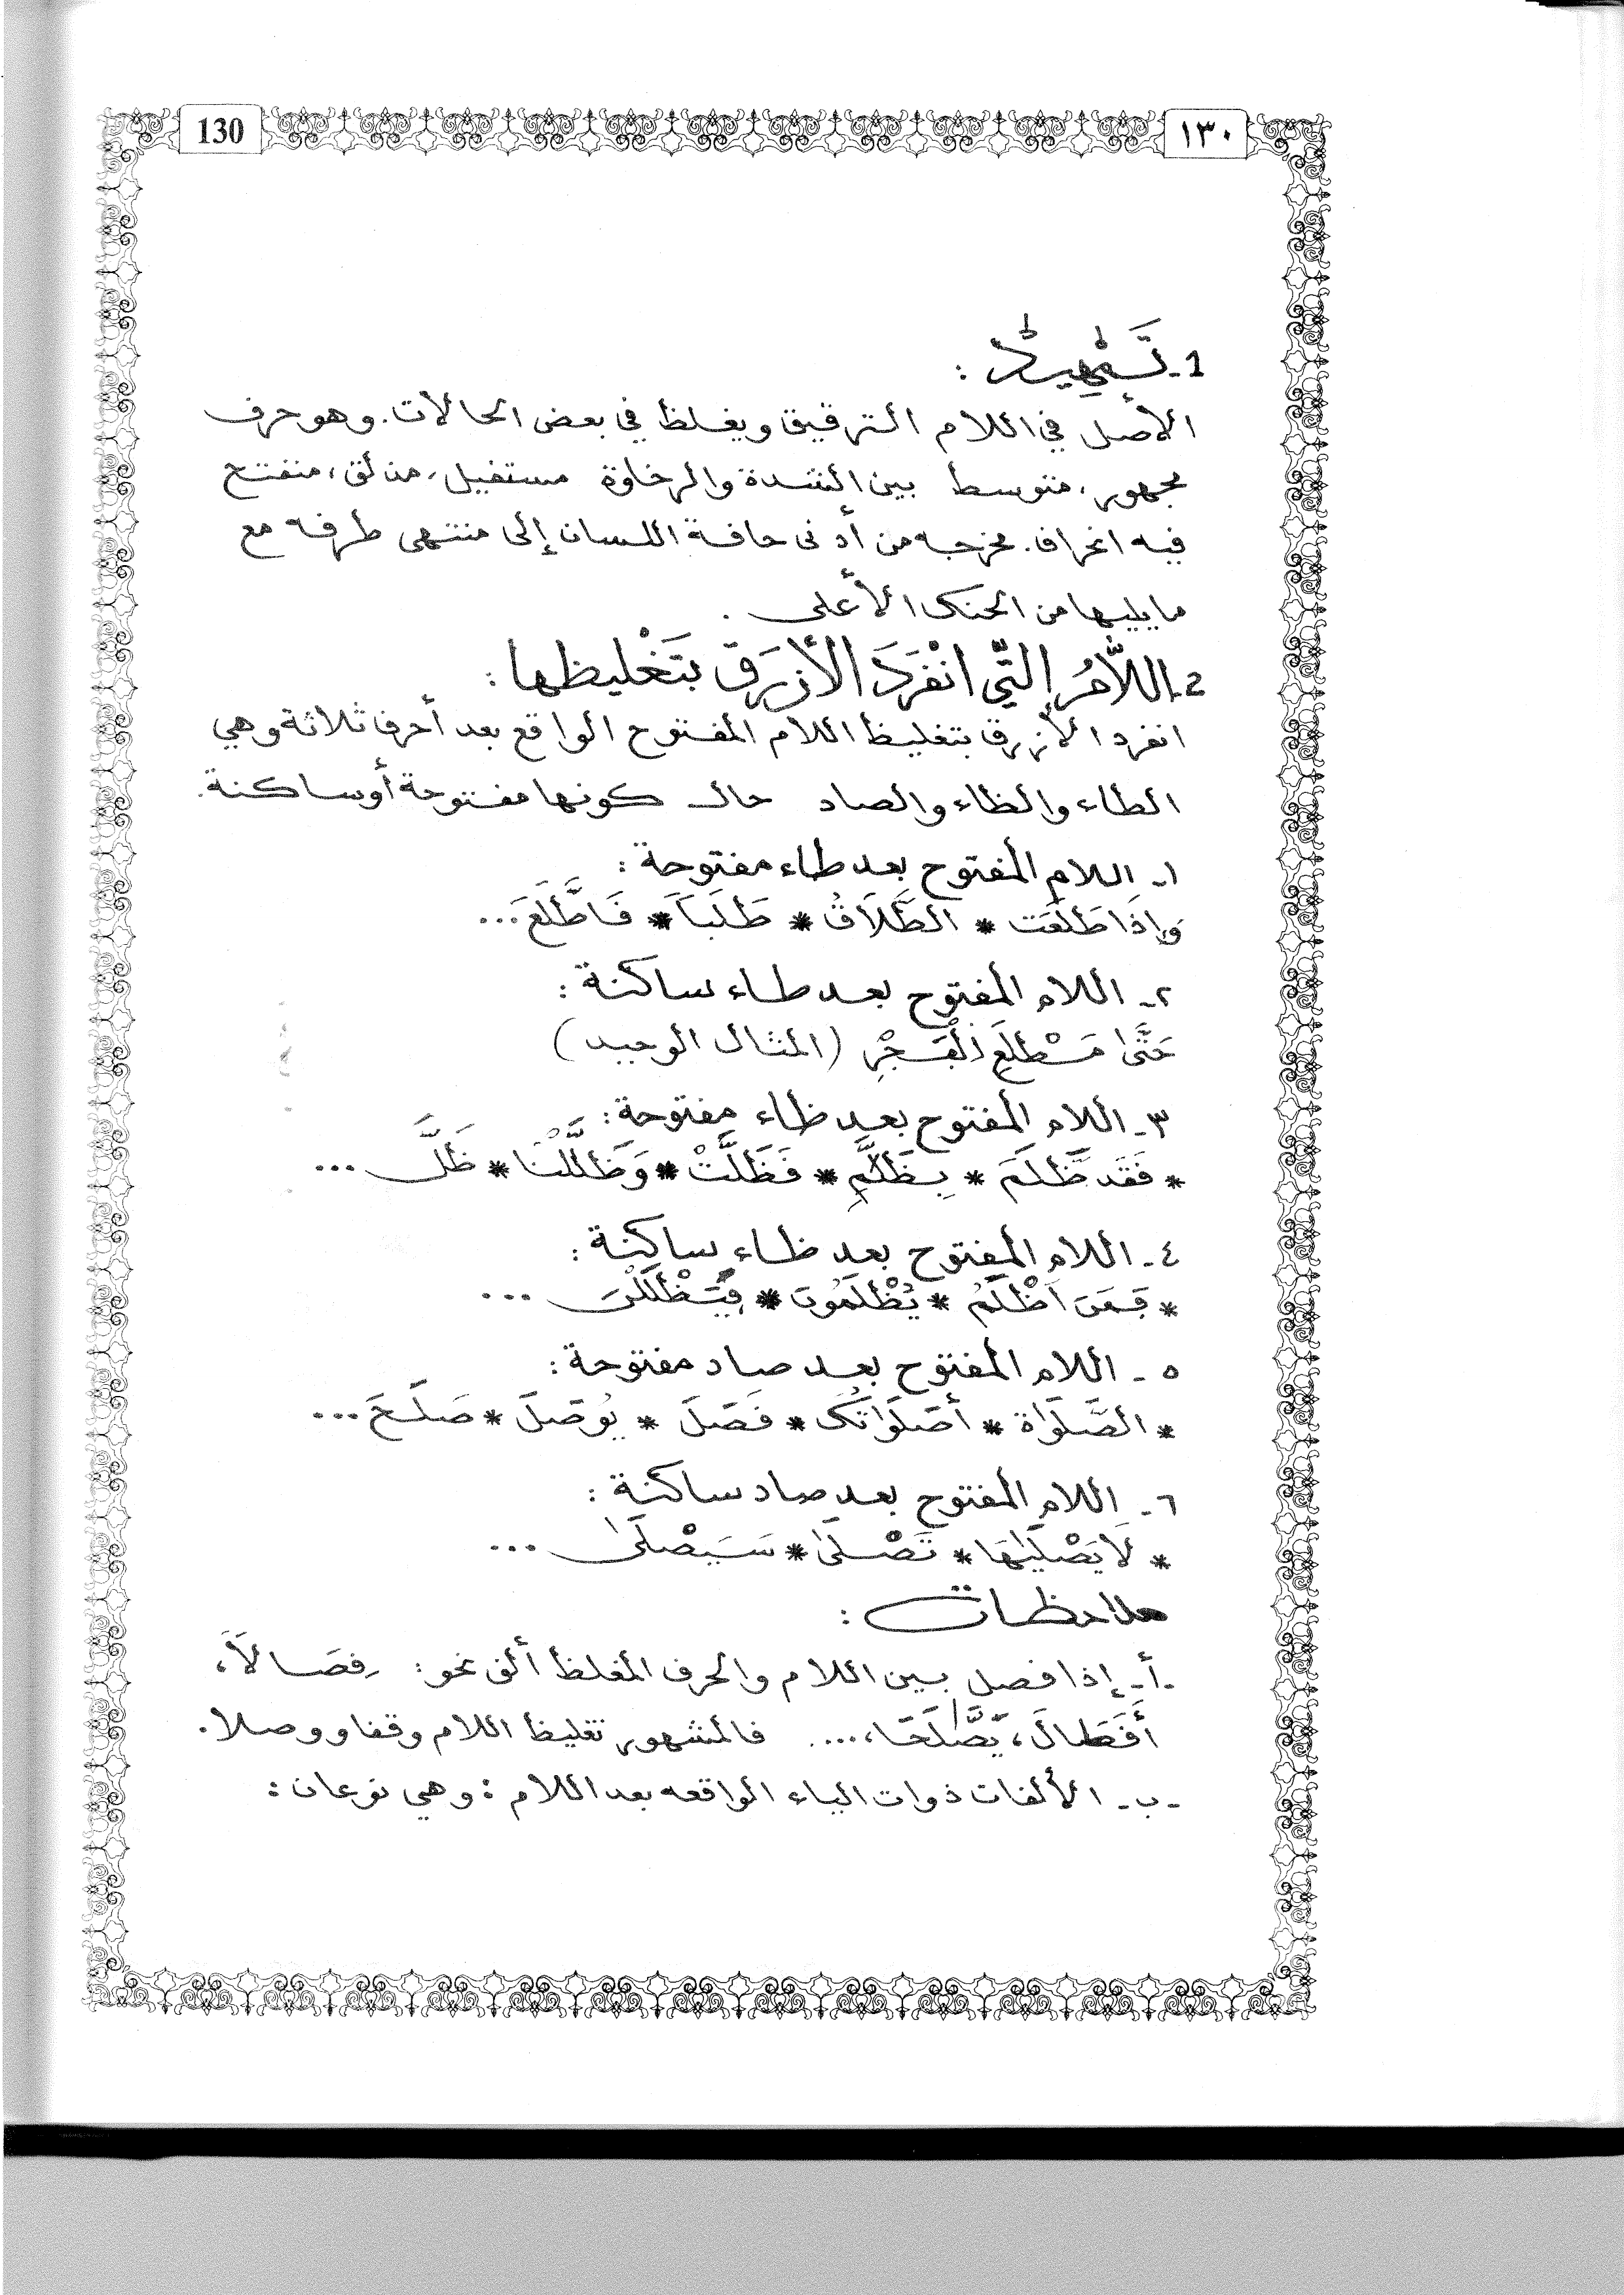 130
١٣٠
1- تَمْهِيدٌ :
الأصل في اللام الترقيق ويغلظ في بعض الحالات. وهو حرف
مجهور، متوسط بين الشدة والرخاوة مستفيل، مذلق، منفتح
فيه انحراف. مخرجه من أدنى حافة اللسان إلى منتهى طرفه مع
ما يليها من الحنك الأعلى .
2- اللَّامُ التِّي انْفَرَدَ الأَزرَق بتَغْليظها :
انفرد الأزرق بتغليظ اللام المفتوح الواقع بعد أحرف ثلاثة وهي
الطاء والظاء والصاد حال كونها مفتوحة أو ساكنة.
١- اللام المفتوح بعد طاء مفتوحة :
وَإِذَا طَلَعَت * الطَّلَاقُ * طَلَباً * فَاطَّلَعَ...
٢- اللام المفتوح بعد طاء ساكنة :
حَتَّىٰ مَطْلَعِ الْفَجْرِ (المثال الوحيد)
٣- اللام المفتوح بعد ظاء مفتوحة :
* فَقَد ظَّلَمَ * بِظَلَّٰمٍ * فَظَلَّتْ * وَظَلَّلْنَا * ظَلَّ ...
٤- اللام المفتوح بعد ظاء ساكنة :
* فَمَنَ اَظْلَمُ * يُظْلَمُونَ * فَيَظْلَلْنَ ...
٥- اللام المفتوح بعد صاد مفتوحة :
* الصَّلَوٰاة * أَصَلَوَاتُكَ * فَصَلَ * يُوصَلَ * صَلَحَ ...
٦- اللام المفتوح بعد صاد ساكنة :
* لَا يَصْلَيٰهَا * تَصْلَىٰ * سَيَصْلَىٰ ...
ملاحظات :
- أ- إذا فصل بين اللام والحرف المغلظ ألف نحو : فِصَالاً،
أَفَطَالَ، يَصَّٰلَحَا،.... فالمشهور تغليظ اللام وقفا ووصلا.
- ب- الألفات ذوات الياء الواقعه بعد اللام : وهي نوعان :